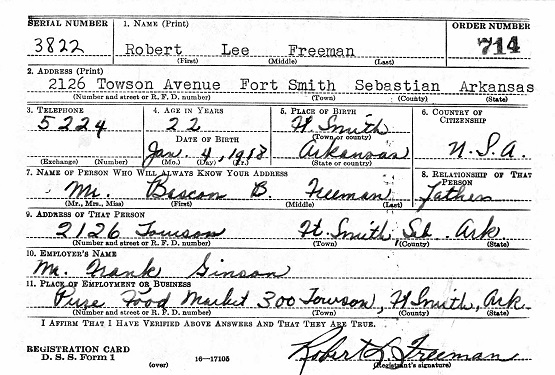 SERIAL NUMBER 1. NAME (Print) ORDER NUMBER
3822 Robert Lee Freeman 714
(First) (Middle) (Last)
2. ADDRESS (Print)
2126 Towson Avenue Fort Smith Sebastian Arkansas
(Number and street or R. F. D. number) (Town) (County) (State)
3. TELEPHONE 4. AGE IN YEARS 5. PLACE OF BIRTH 6. COUNTRY OF CITIZENSHIP
5224 22 Ft. Smith
DATE OF BIRTH (Town or county)
Jan. 4, 1918 Arkansas U.S.A.
(Exchange) (Number) (Mo.) (Day) (Yr.) (State or country)
7. NAME OF PERSON WHO WILL ALWAYS KNOW YOUR ADDRESS 8. RELATIONSHIP OF THAT PERSON
Mr. Bascon B. Freeman Father
(Mr., Mrs., Miss) (First) (Middle) (Last)
9. ADDRESS OF THAT PERSON
2126 Towson Ft. Smith Seb. Ark.
(Number and street or R. F. D. number) (Town) (County) (State)
10. EMPLOYER'S NAME
Mr. Frank Ginson
11. PLACE OF EMPLOYMENT OR BUSINESS
Pure Food Market 300 Towson, Ft Smith, Ark.
(Number and street or R. F. D. number) (Town) (County) (State)
I AFFIRM THAT I HAVE VERIFIED ABOVE ANSWERS AND THAT THEY ARE TRUE.
REGISTRATION CARD Robert L. Freeman
D. S. S. Form 1 (over) 16—17105 (Registrant's signature)